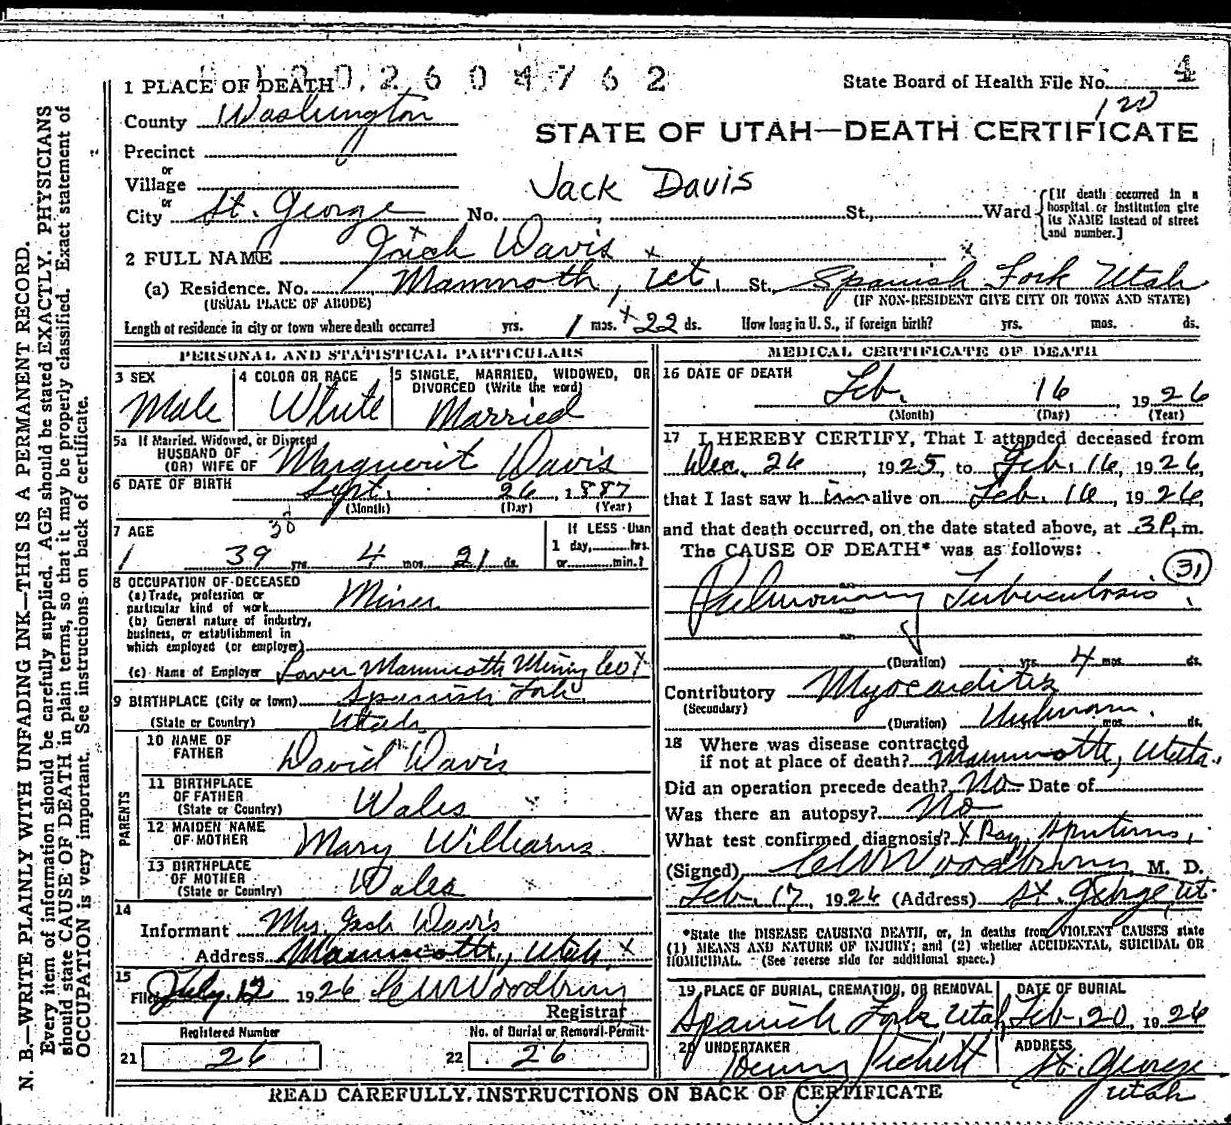 1 PLACE OF DEATH
12026 04762
State Board of Health File No. 4
County Washington
STATE OF UTAH—DEATH CERTIFICATE
Precinct
or
Village
Jack Davis
or
City St. George No. St., Ward
[If death occurred in a hospital or institution give its NAME instead of street and number.]
2 FULL NAME Jack Davis
(a) Residence. No. Mammoth, Ut. St. Spanish Fork Utah
(USUAL PLACE OF ABODE) (IF NON-RESIDENT GIVE CITY OR TOWN AND STATE)
Length of residence in city or town where death occurred yrs. 1 mos. 22 ds. How long in U. S., if foreign birth? yrs. mos. ds.
PERSONAL AND STATISTICAL PARTICULARS
3 SEX
Male
4 COLOR OR RACE
White
5 SINGLE, MARRIED, WIDOWED, OR
DIVORCED (Write the word)
Married
5a If Married, Widowed, or Divorced
HUSBAND OF
(OR) WIFE OF Marguerit Davis
6 DATE OF BIRTH Sept. 26, 1887
(Month) (Day) (Year)
7 AGE
38
39 yrs. 4 mos. 21 ds.
If LESS than
1 day, hrs.
or min.?
8 OCCUPATION OF DECEASED
(a) Trade, profession or
particular kind of work Miner
(b) General nature of industry,
business, or establishment in
which employed (or employer)
(c) Name of Employer Lower Mammoth Mining Co X
9 BIRTHPLACE (City or town) Spanish Fork
(State or Country) Utah
PARENTS
10 NAME OF
FATHER David Davis
11 BIRTHPLACE
OF FATHER
(State or Country) Wales
12 MAIDEN NAME
OF MOTHER Mary Williams
13 BIRTHPLACE
OF MOTHER
(State or Country) Wales
14
Informant Mrs. Jack Davis
Address Mammoth, Utah X
15
Filed July 12 1926 C W Woodbury
Registrar
Registered Number
21 26
No. of Burial or Removal Permit
22 26
MEDICAL CERTIFICATE OF DEATH
16 DATE OF DEATH
Feb. 16, 1926
(Month) (Day) (Year)
17 I HEREBY CERTIFY, That I attended deceased from
Dec. 26, 1925, to Feb. 16, 1926,
that I last saw him alive on Feb. 16, 1926,
and that death occurred, on the date stated above, at 3P.m.
The CAUSE OF DEATH* was as follows:
31
Pulmonary Tuberculosis.
(Duration) yrs. 4 mos. ds.
Contributory Myocarditis
(Secondary)
(Duration) Unknown. mos. ds.
18 Where was disease contracted
if not at place of death? Mammoth, Utah.
Did an operation precede death? No Date of
Was there an autopsy? No
What test confirmed diagnosis? X Ray, Sputums,
(Signed) C W Woodbury, M. D.
Feb. 17, 1926 (Address) St. George, Ut.
*State the DISEASE CAUSING DEATH, or, in deaths from VIOLENT CAUSES state
(1) MEANS AND NATURE OF INJURY; and (2) whether ACCIDENTAL, SUICIDAL OR
HOMICIDAL. (See reverse side for additional space.)
19 PLACE OF BURIAL, CREMATION, OR REMOVAL
Spanish Fork, Utah
DATE OF BURIAL
Feb. 20, 1926
20 UNDERTAKER
Henry Pickett
ADDRESS
St. George
Utah
READ CAREFULLY INSTRUCTIONS ON BACK OF CERTIFICATE
N. B.—WRITE PLAINLY WITH UNFADING INK—THIS IS A PERMANENT RECORD.
Every item of information should be carefully supplied. AGE should be stated EXACTLY. PHYSICIANS
should state CAUSE OF DEATH in plain terms, so that it may be properly classified. Exact statement of
OCCUPATION is very important. See instructions on back of certificate.